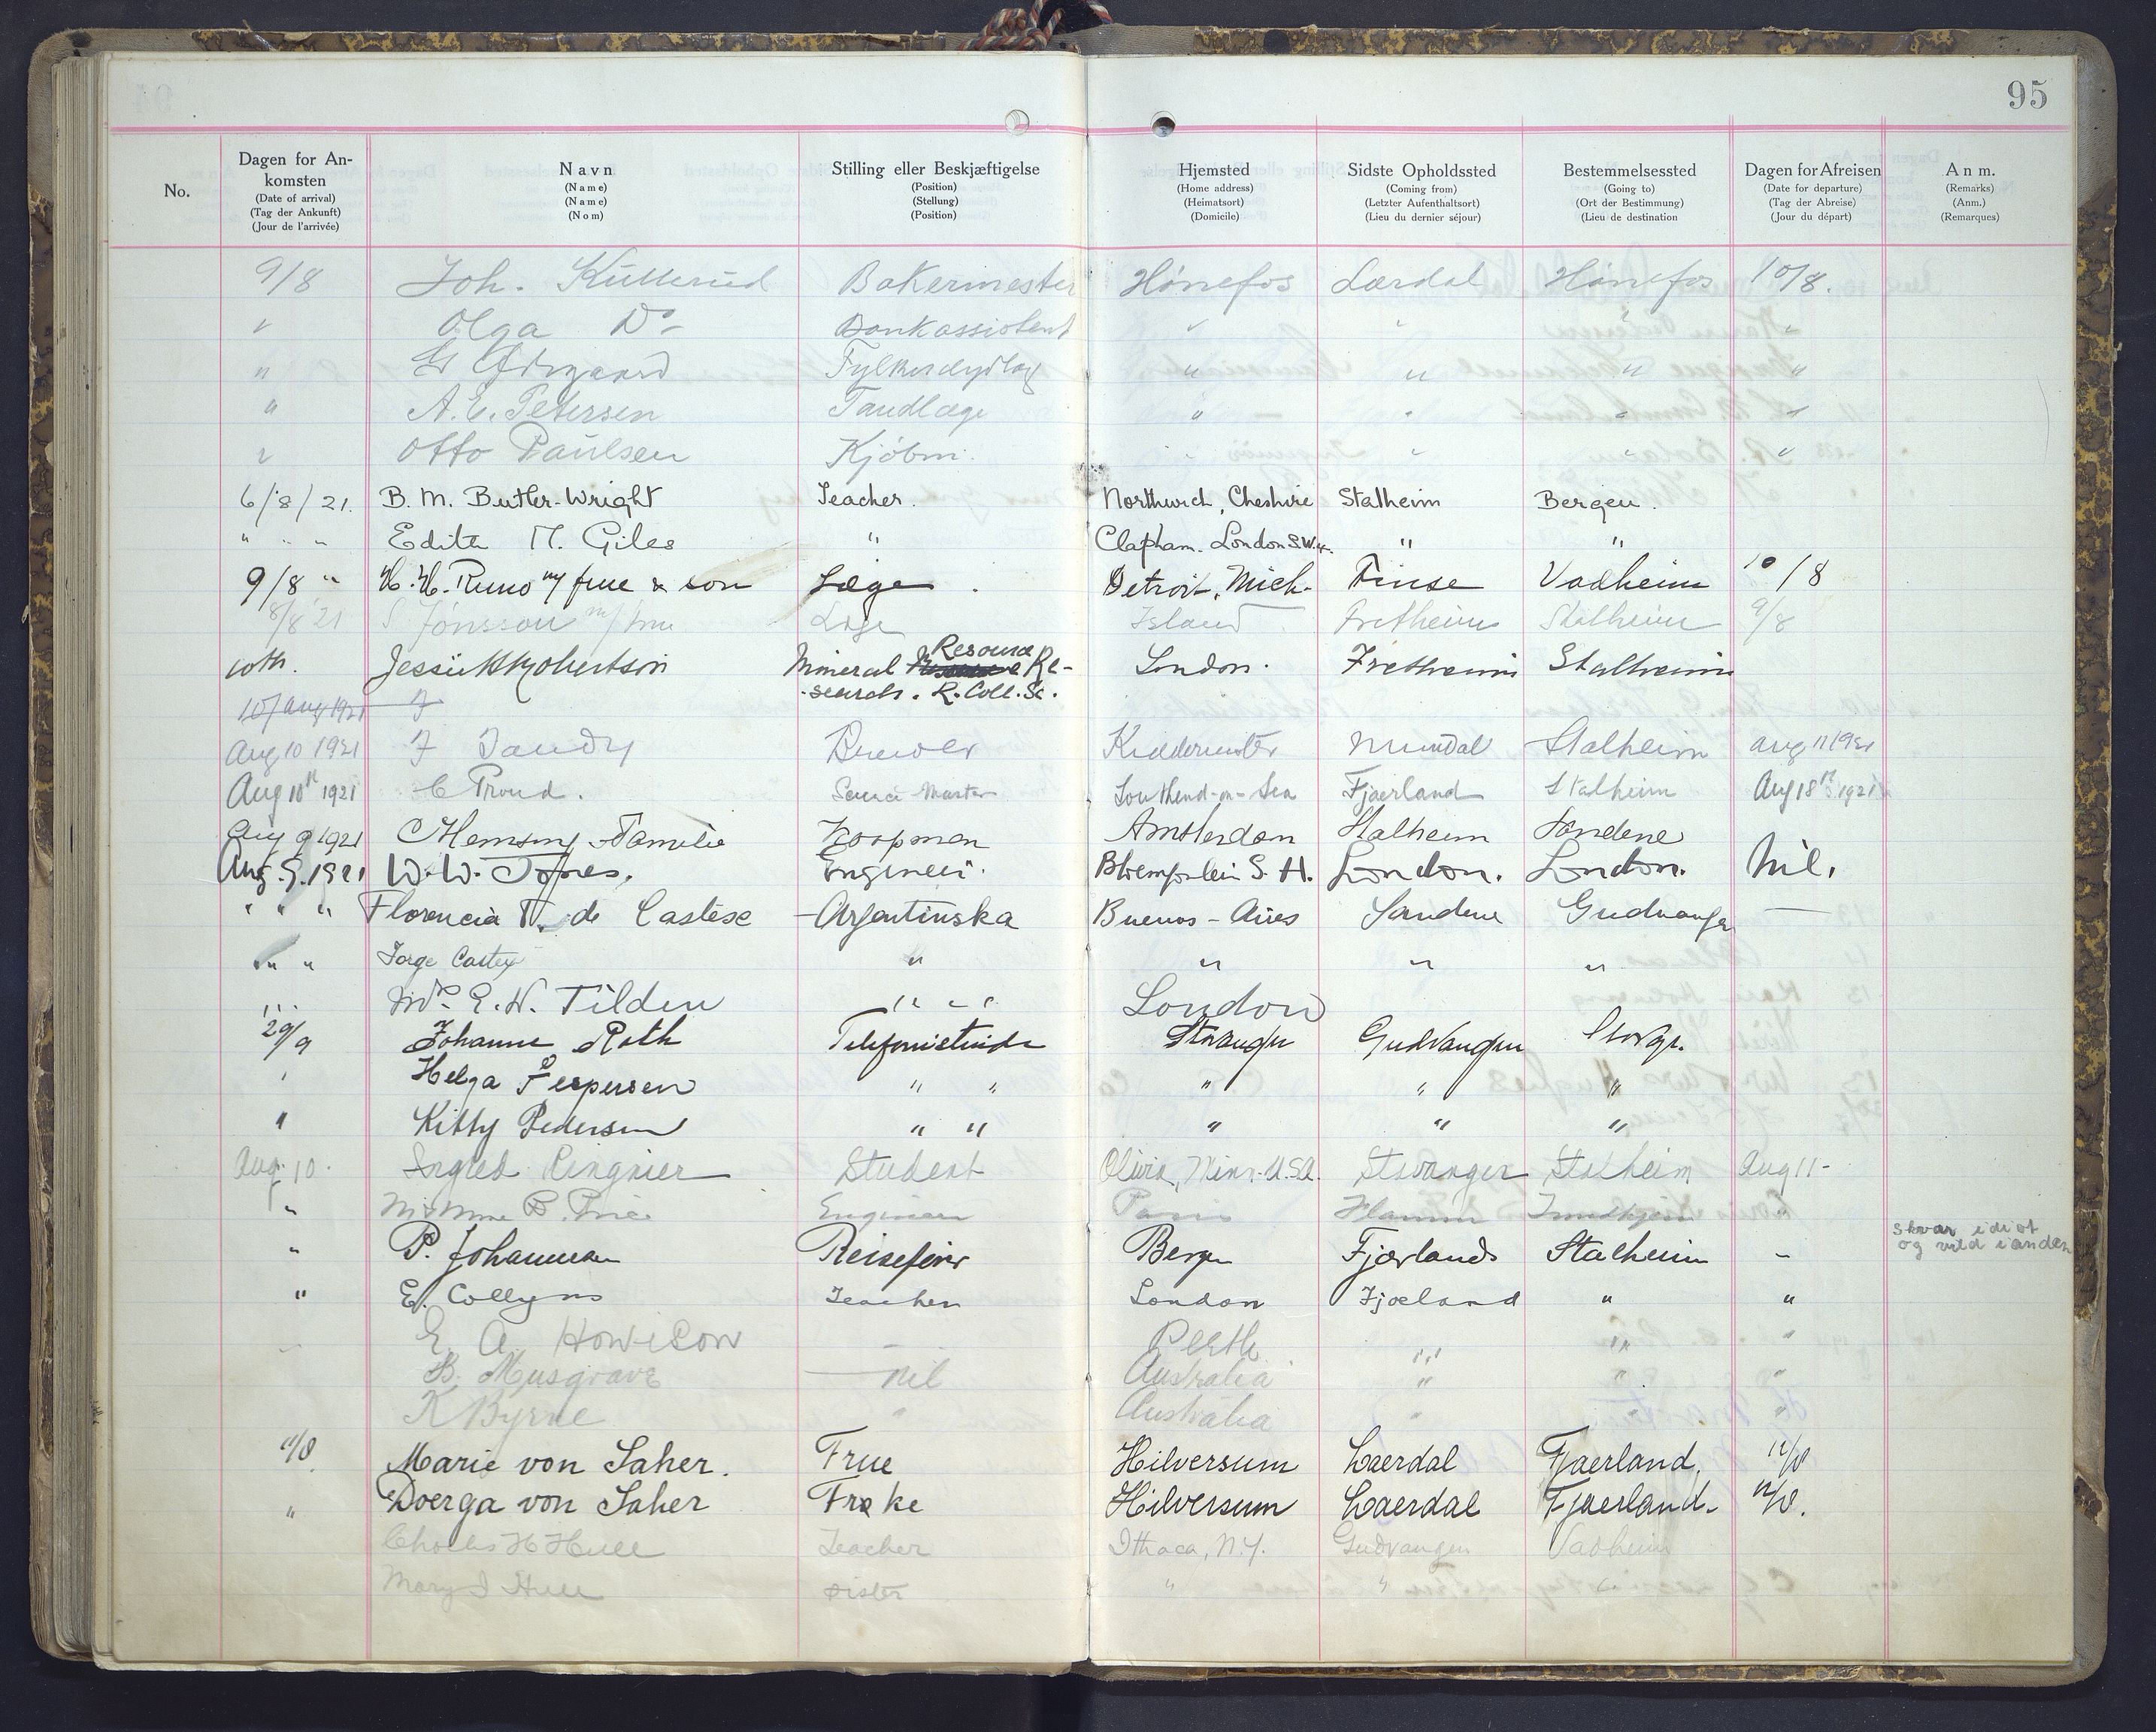 95
No.
Dagen for An-
komsten
(Date of arrival)
(Tag der Ankunft)
(Jour de l'arrivée)
Navn
(Name)
(Name)
(Nom)
Stilling eller Beskjæftigelse
(Position)
(Stellung)
(Position)
Hjemsted
(Home address)
(Heimatsort)
(Domicile)
Sidste Opholdssted
(Coming from)
(Letzter Aufenthaltsort)
(Lieu du dernier séjour)
Bestemmelsessted
(Going to)
(Ort der Bestimmung)
(Lieu de destination
Dagen for Afreisen
(Date for departure)
(Tag der Abreise)
(Jour du départ)
Anm.
(Remarks)
(Anm.)
(Remarques)
9/8 Joh. Kullerud Bakermester Hönefos Lærdal Hönefos 10/8.
" Olga Do - Bankassistent " " " "
" " " " "
" A. E. Petersen Tandlæge " " " "
" Otto Paulsen Kjöbm. " " " "
6/8/21. B. M. Butler-Wright Teacher. Northwich, Cheshire Stalheim Bergen.
" " " Edith M. Giles " Clapham. London S.W.4. " "
9/8 " H. H. Runo m/ frue & son Læge. Detroit, Mich. Finse Vadheim 10/8
8/8 21 S Jónsson m/ fru Læge Island Fretheim Stalheim 9/8
10th. Mineral Resource Re-
search. R. Coll. Sc. London. Fretheim Stalheim
10/ Aug 1921 F
Aug 10 1921 F Tandy Brewer Kidderminster Mundal Stalheim Aug 11 1921
Aug 10th 1921 C Proud. Science Master Southend-on-Sea Fjaerland Stalheim Aug 18th 1921
Aug 9 1921 Familie Koopman Amsterdam Stalheim Sandene
Aug. 9. 1921 W. W. Jones. Engineer. London. London. Nil.
" " " Florencia T. de Castex - Argentinska Buenos-Aires Sandene Gudvangen —
" " Jorge Castex " " " "
" Mr. E. W. Tilden " " " London
29/9 Johanne Roth Telefonistinde Stavanger Gudvangen Stavgr.
" Helga Jespersen " " " " "
" Kitty Pedersen " " " " "
Aug. 10. Ingred Ringnier Student Olivia, Minn. U.S.A. Stavanger Stalheim Aug 11 -
" B. Price Engineer Paris "
" P. Johannesen Reisefører Bergen Fjærlands Stalheim - Skvær idiot
og vild i anden
" E. Collyns Teacher London Fjæland " "
" E. A. Howison - Perth " " "
B. Musgrave — nil Australia " " "
K Byrne " Australia " " "
11/8 Marie von Saher. Frue Hilversum Laerdal Fjaerland. 12/8
" Doerga von Saher Frøke Hilversum Laerdal Fjaerland. 12/8.
Charles H Hull Teacher Ithaca, N.Y. Gudvangen Vadheim
Mary I Hull sister " " "